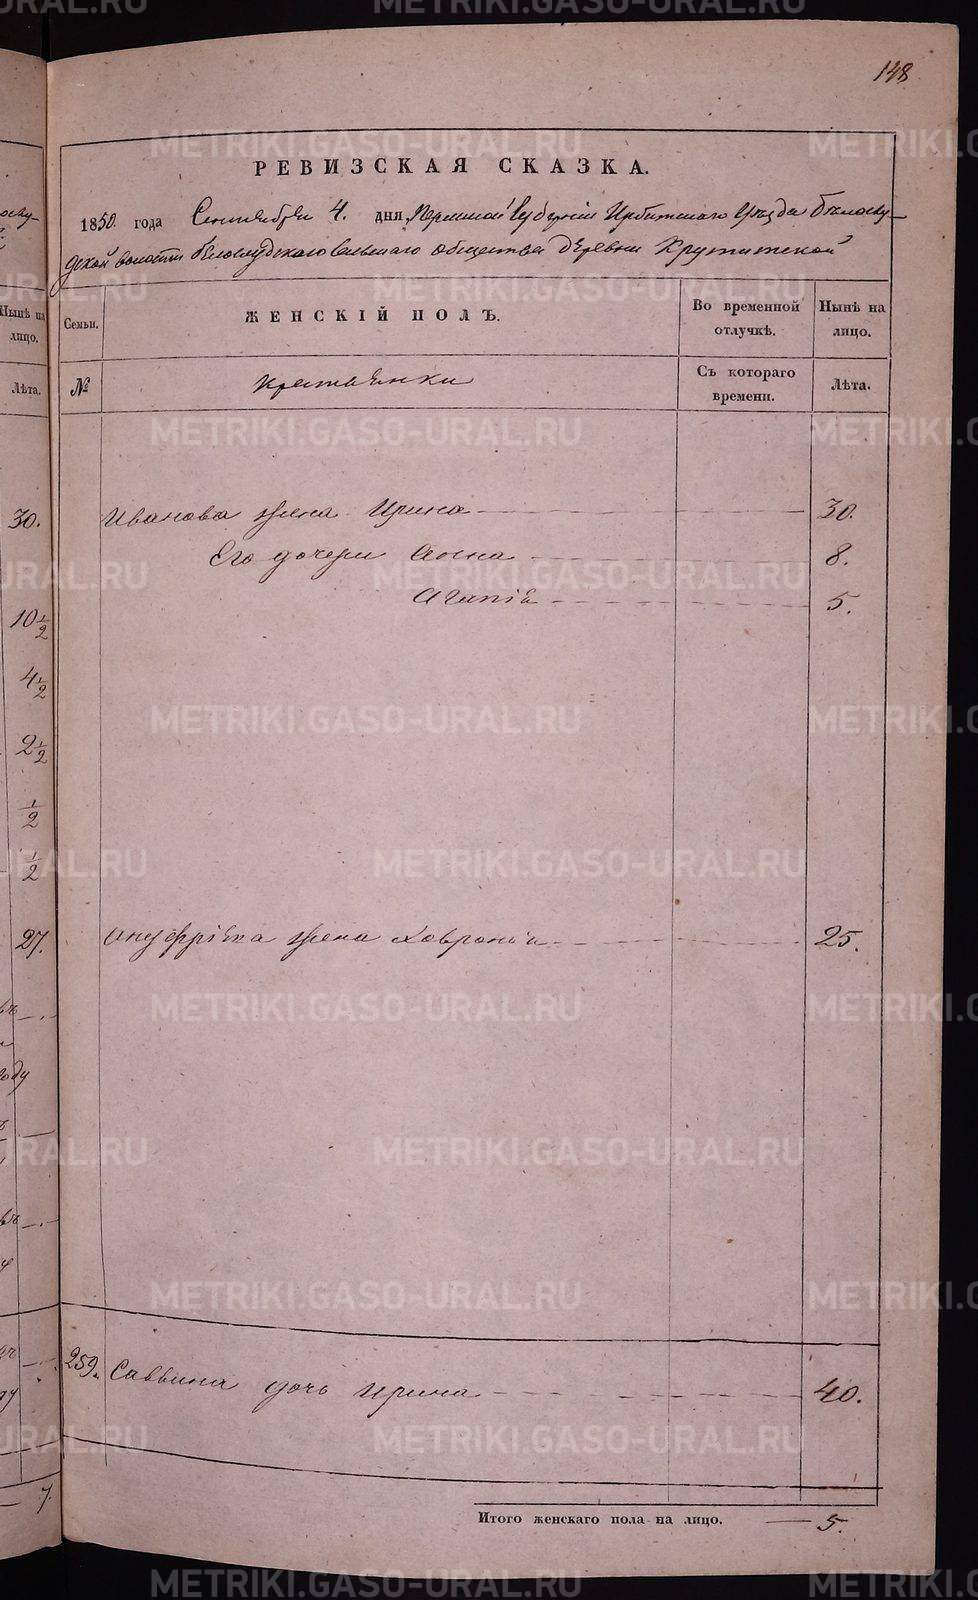 148
РЕВИЗСКАЯ СКАЗКА.
1850. года Сентября 4. дня, Пермской Губерніи Ирбитскаго Уѣзда Бѣлослу-
дской волости Бѣлослудскаго Сельскаго общества Деревни Крутитской
Семьи. ЖЕНСКІЙ ПОЛЪ. Во временной отлучкѣ. Нынѣ на лицо.
№ Крестьянки Съ котораго времени. Лѣта.
Иванова жена Ирина 30.
Его дочери Анна 8.
Агапія 5.
жена Хавронія 25.
259. Саввина дочь Ирина 40.
Итого женскаго пола на лицо. 5.
Нынѣ на
лицо.
Лѣта.
30.
10 1/2
4 1/2
2 1/2
1/2
1/2
27.
году
7.
METRIKI.GASO-URAL.RU